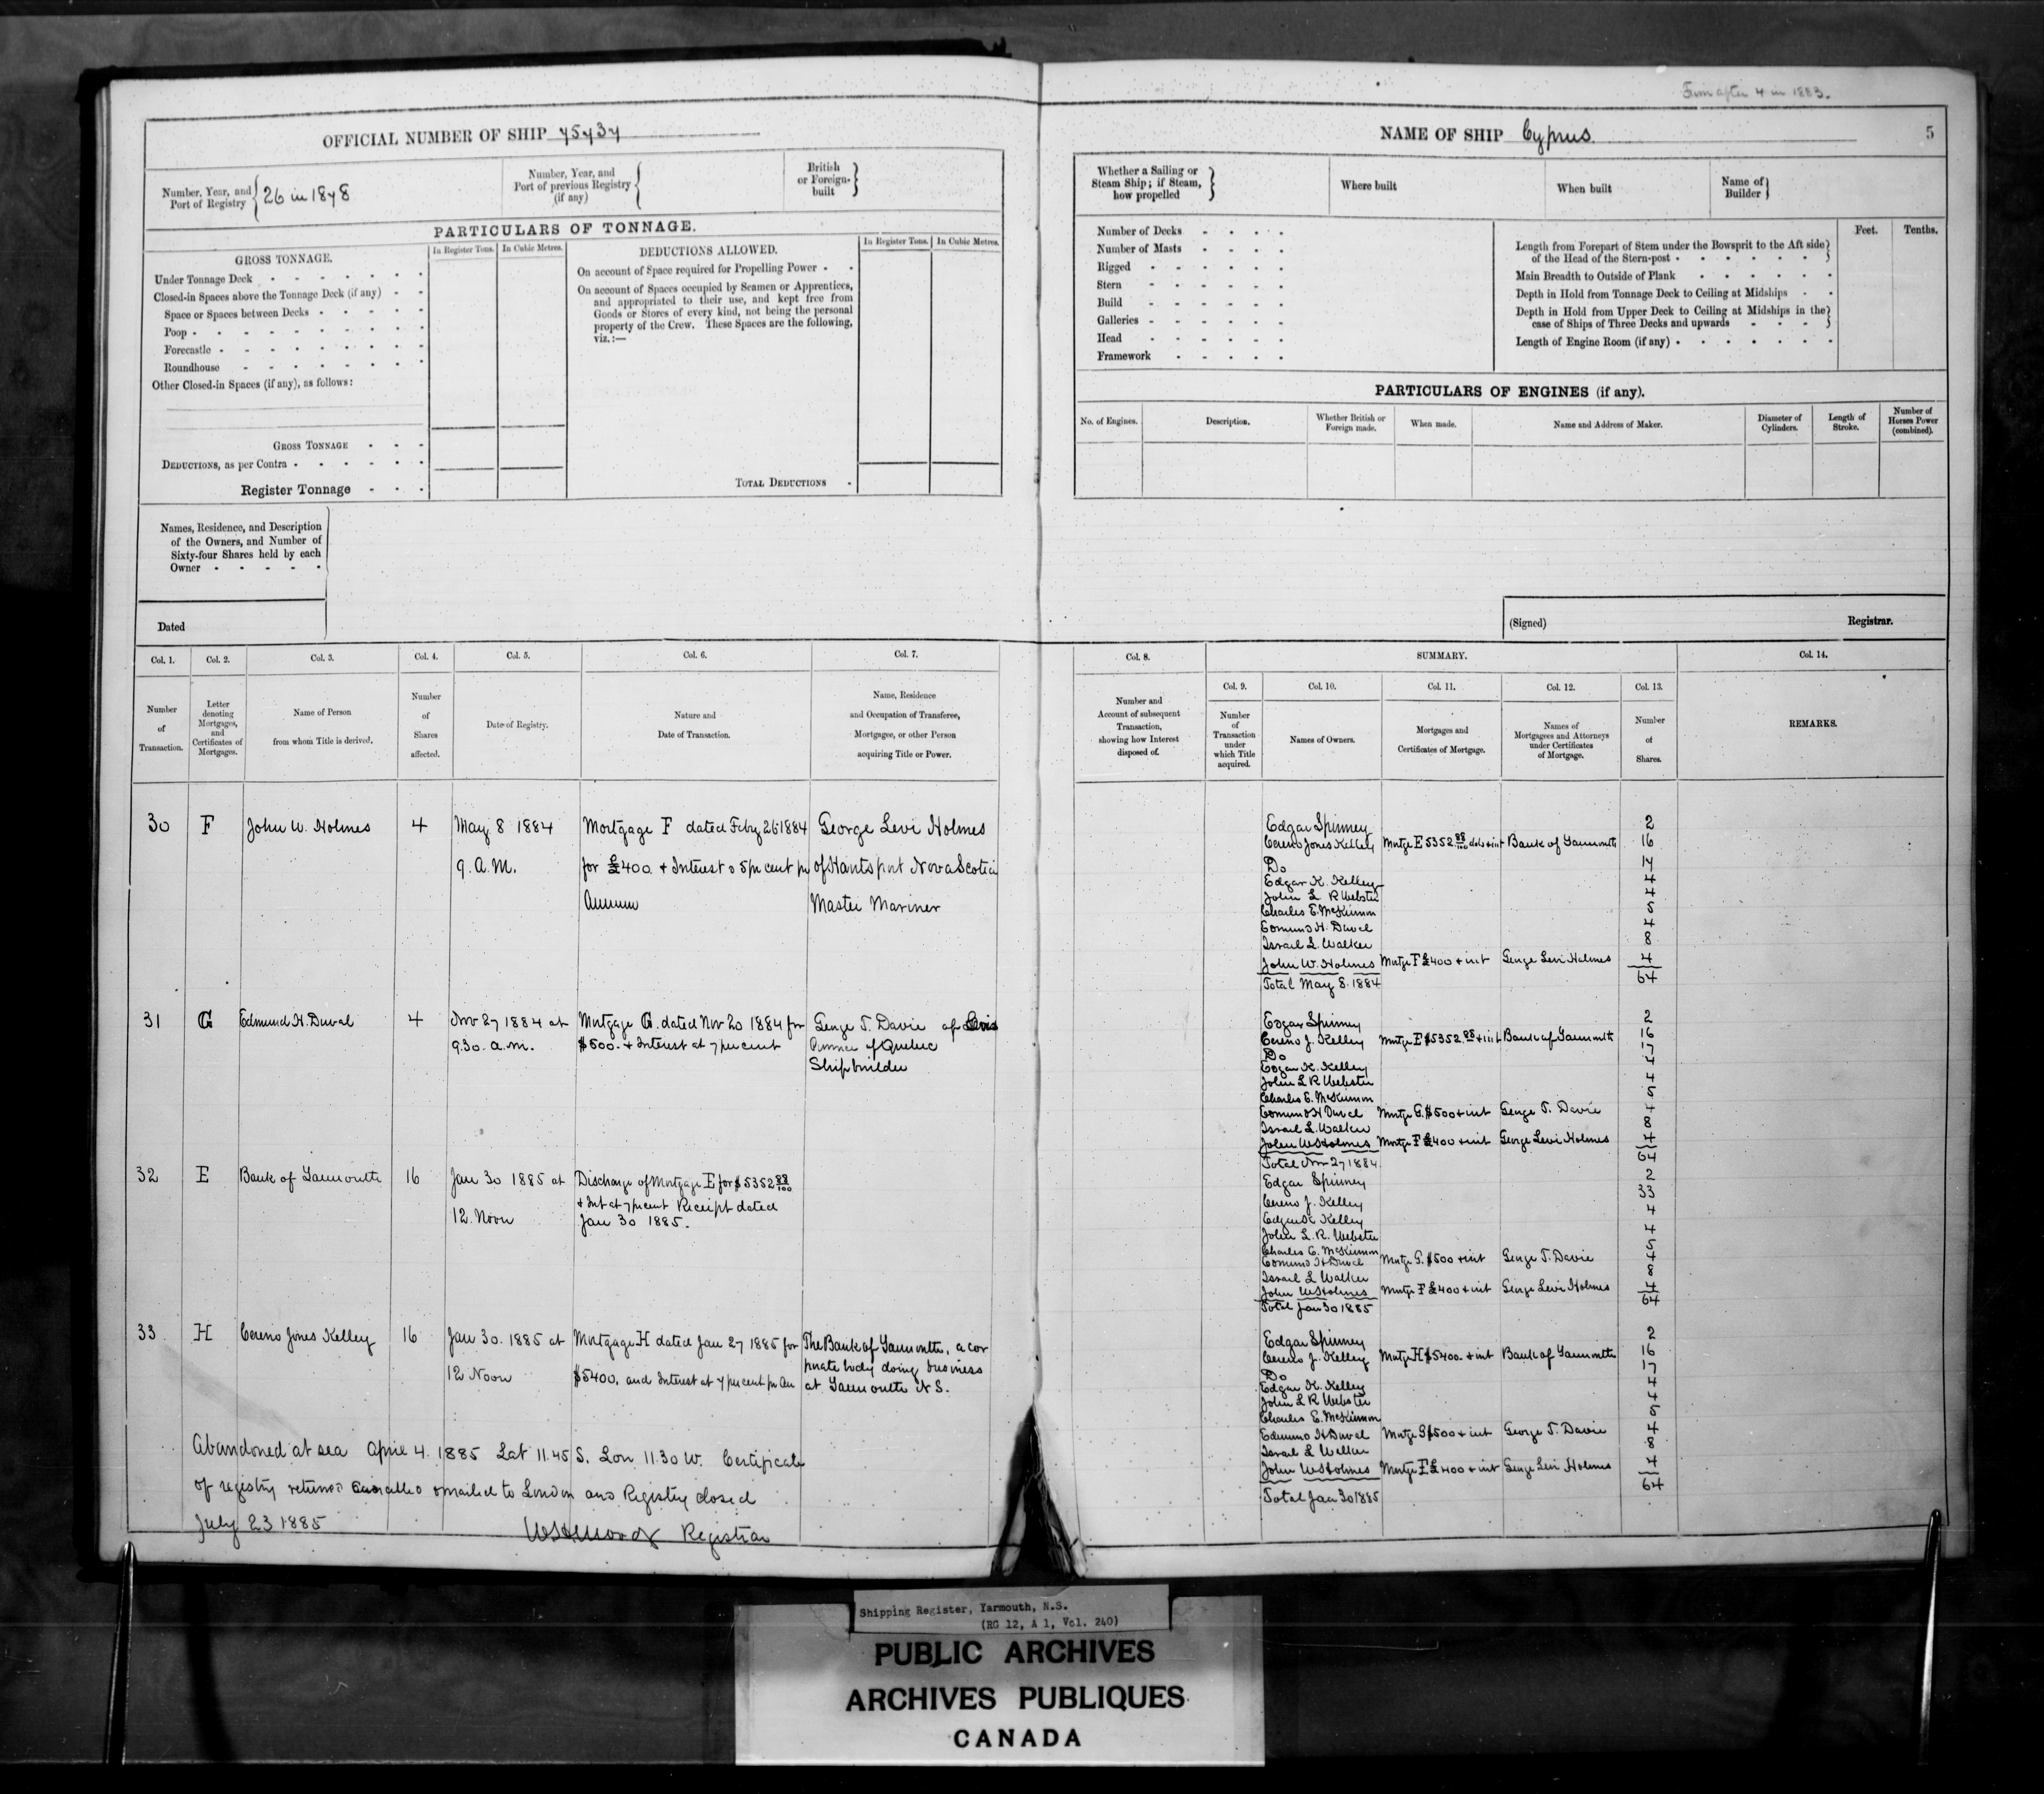 From after 4 in 1883.
OFFICIAL NUMBER OF SHIP 75737
Number, Year, and Port of Registry { 26 in 1878
Number, Year, and Port of previous Registry (if any) {
British or Foreign-built }
PARTICULARS OF TONNAGE.
GROSS TONNAGE.
In Register Tons. In Cubic Metres.
DEDUCTIONS ALLOWED.
In Register Tons. In Cubic Metres.
Under Tonnage Deck
Closed-in Spaces above the Tonnage Deck (if any)
Space or Spaces between Decks
Poop
Forecastle
Roundhouse
Other Closed-in Spaces (if any), as follows:
GROSS TONNAGE
DEDUCTIONS, as per Contra
Register Tonnage
On account of Space required for Propelling Power
On account of Spaces occupied by Seamen or Apprentices,
and appropriated to their use, and kept free from
Goods or Stores of every kind, not being the personal
property of the Crew. These Spaces are the following,
viz.:—
TOTAL DEDUCTIONS
Names, Residence, and Description
of the Owners, and Number of
Sixty-four Shares held by each
Owner
Dated
NAME OF SHIP Cyprus 5
Whether a Sailing or
Steam Ship; if Steam,
how propelled }
Where built
When built
Name of Builder }
Number of Decks
Number of Masts
Rigged
Stern
Build
Galleries
Head
Framework
Feet. Tenths.
Length from Forepart of Stem under the Bowsprit to the Aft side
of the Head of the Stern-post }
Main Breadth to Outside of Plank
Depth in Hold from Tonnage Deck to Ceiling at Midships
Depth in Hold from Upper Deck to Ceiling at Midships in the
case of Ships of Three Decks and upwards }
Length of Engine Room (if any)
PARTICULARS OF ENGINES (if any).
No. of Engines.
Description.
Whether British or Foreign made.
When made.
Name and Address of Maker.
Diameter of Cylinders.
Length of Stroke.
Number of Horses Power (combined).
(Signed) Registrar.
Col. 1. Col. 2. Col. 3. Col. 4. Col. 5. Col. 6. Col. 7.
Number of Transaction.
Letter denoting Mortgages, and Certificates of Mortgages.
Name of Person from whom Title is derived.
Number of Shares affected.
Date of Registry.
Nature and Date of Transaction.
Name, Residence and Occupation of Transferee, Mortgagee, or other Person acquiring Title or Power.
30 F John W. Holmes 4 May 8 1884 Mortgage F dated Feby 26 1884 George Levi Holmes
9. A.M. for £400 + Interest @ 5 per cent pr of Hantsport Nova Scotia
Annum Master Mariner
31 G Edmund H. Duval 4 Nov 27 1884 at Mortgage G. dated Nov 20 1884 for George T. Davie of Levis
9.30. a.m. $500. + Interest at 7 per cent Province of Quebec
Shipbuilder
32 E Bank of Yarmouth 16 Jan 30 1885 at Discharge of Mortgage E for $5352 88/100
12. Noon + Int at 7 per cent Receipt dated
Jan 30 1885.
33. H Cereno Jones Kelley 16 Jan 30. 1885 at Mortgage H dated Jan 27 1885 for The Bank of Yarmouth, a cor
12 Noon $5400. and Interest at 7 per cent pr An porate body doing business
at Yarmouth N S.
Abandoned at sea April 4. 1885 Lat 11.45 S. Lon 11.30 W. Certificate
of registry returned cancelled & mailed to London and Registry closed
July 23 1885
Registrar
Col. 8.
Number and Account of subsequent Transaction, showing how Interest disposed of.
SUMMARY.
Col. 9. Col. 10. Col. 11. Col. 12. Col. 13.
Number of Transaction under which Title acquired.
Names of Owners.
Mortgages and Certificates of Mortgage.
Names of Mortgagees and Attorneys under Certificates of Mortgage.
Number of Shares.
Col. 14.
REMARKS.
Edgar Spinney 2
Cereno Jones Kelley Mortge E 5352 88/100 dols + int Bank of Yarmouth 16
Do 17
Edgar K. Kelley 4
John L R Webster 4
Charles E. McKinnon 5
Edmund H. Duval 4
Israel L. Walker 8
John W. Holmes Mortge F £400 + int George Levi Holmes 4
Total May 8. 1884 64
Edgar Spinney 2
Cereno J. Kelley Mortge E $5352.88 + int Bank of Yarmouth 16
Do 17
Edgar K. Kelley 4
John L R Webster 4
Charles E. McKinnon 5
Edmund H Duval Mortge G. $500 + int George T. Davie 4
Israel L. Walker 8
John W Holmes Mortge F £400 + int George Levi Holmes 4
Total Nov 27 1884 64
Edgar Spinney 2
Cereno J. Kelley 33
Edgar K Kelley 4
John L. R. Webster 4
Charles E. McKinnon 5
Edmund H Duval Mortge G. $500 + int George T. Davie 4
Israel L Walker 8
John W Holmes Mortge F £400 + int George Levi Holmes 4
Total Jan 30 1885 64
Edgar Spinney 2
Cereno J. Kelley Mortge H $5400. + int Bank of Yarmouth 16
Do 17
Edgar K. Kelley 4
John L R Webster 4
Charles E. McKinnon 5
Edmund H Duval Mortge G $500 + int George T. Davie 4
Israel L Walker 8
John W Holmes Mortge F £400 + int George Levi Holmes 4
Total Jan 30 1885 64
Shipping Register, Yarmouth, N.S.
(RG 12, A 1, Vol. 240)
PUBLIC ARCHIVES
ARCHIVES PUBLIQUES
CANADA